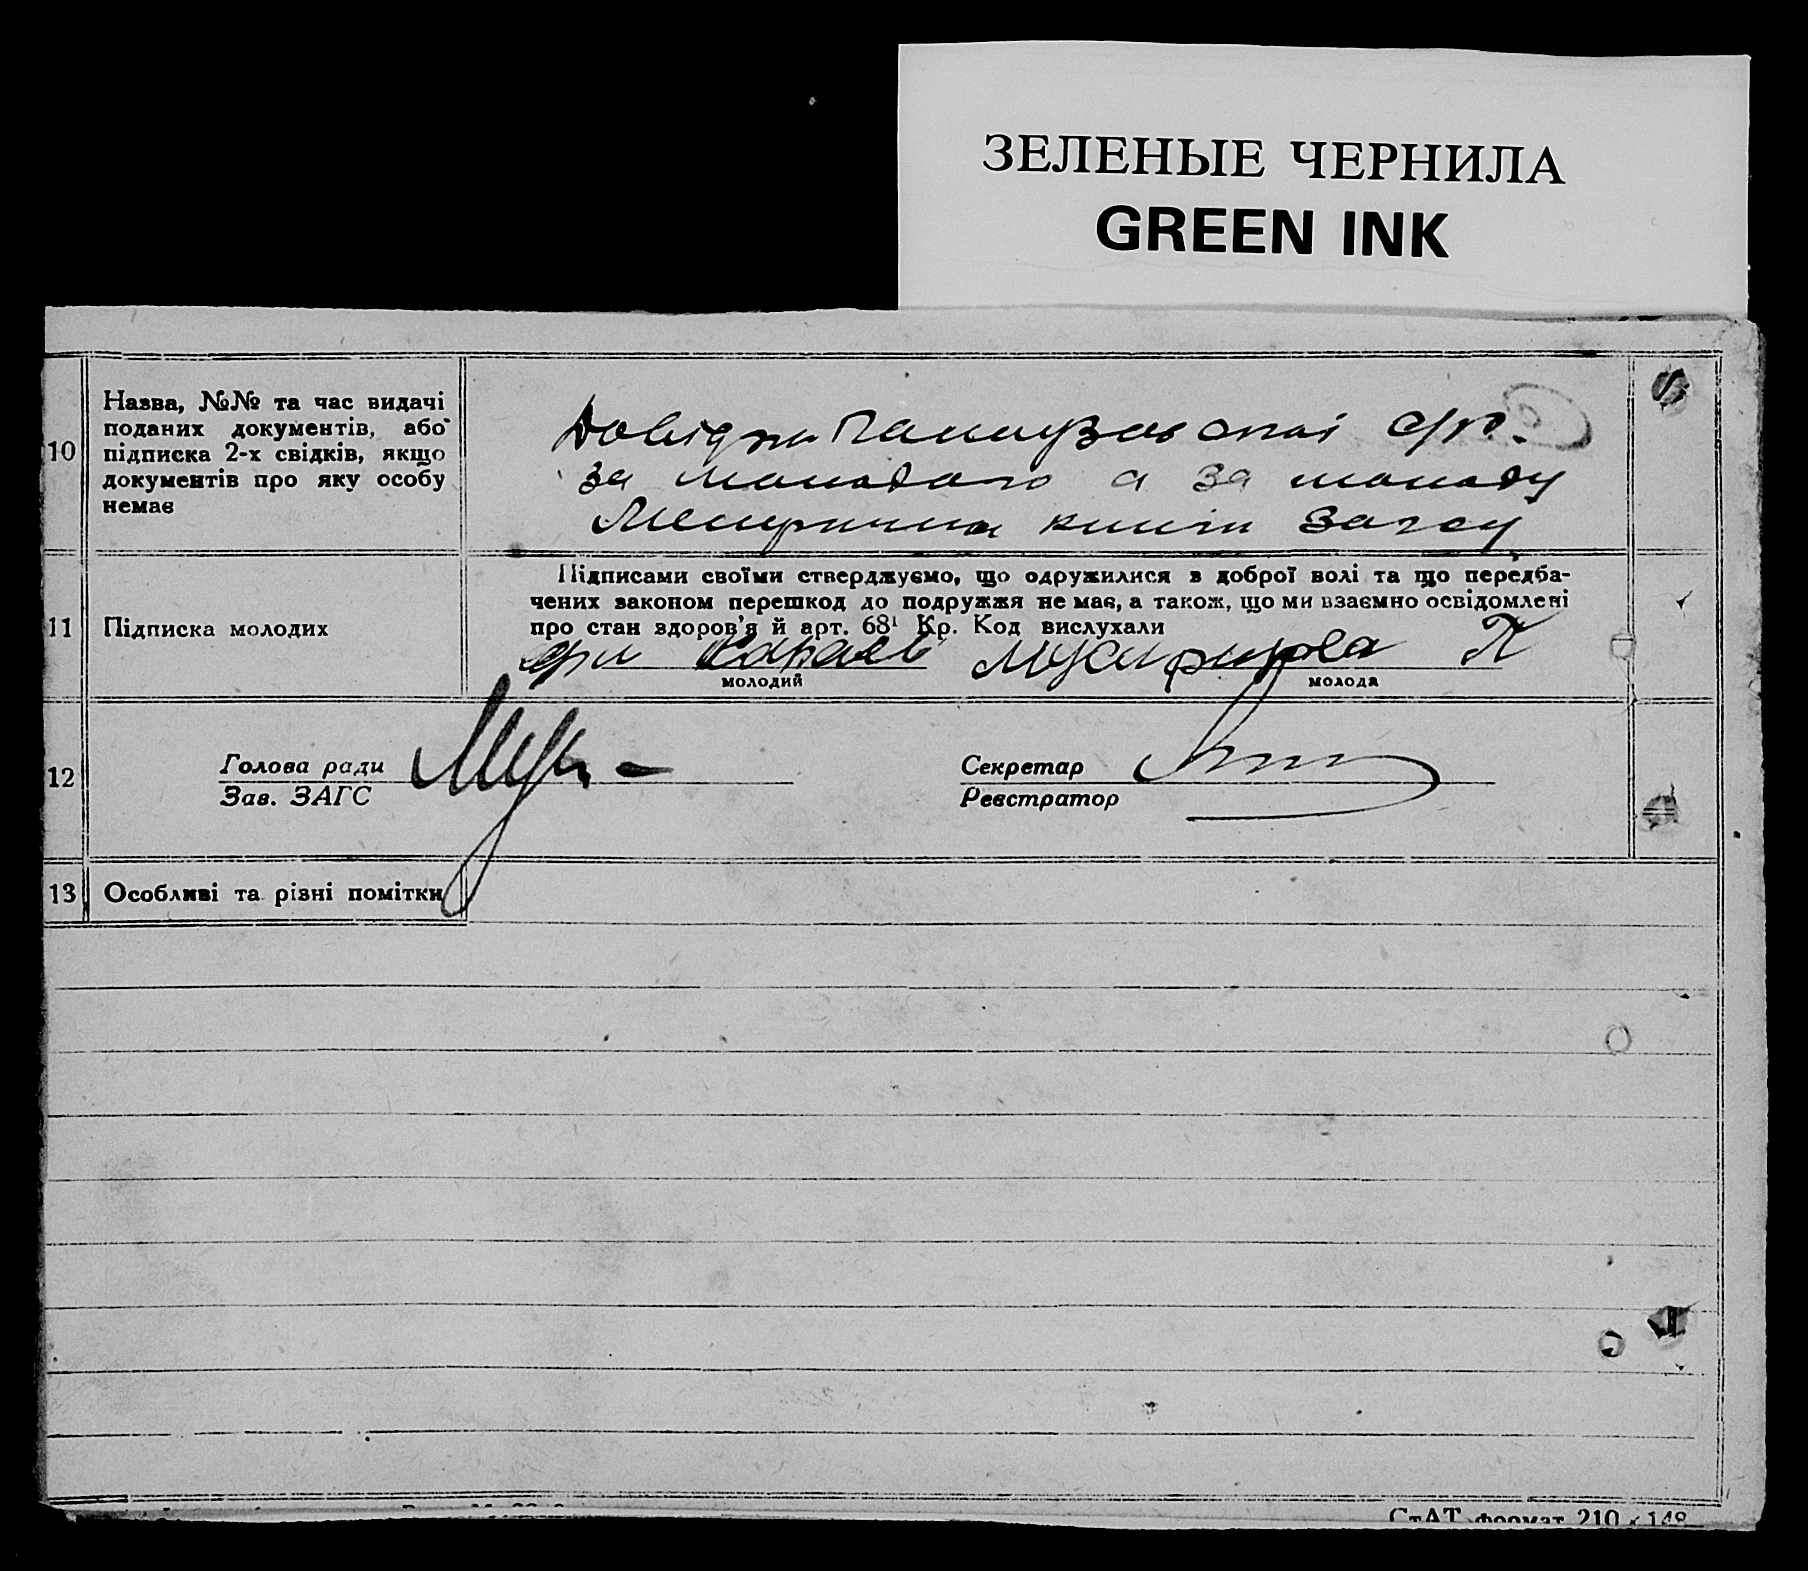 ЗЕЛЕНЫЕ ЧЕРНИЛА
GREEN INK
10
Назва, №№ та час видачі
поданих документів, або
підписка 2-х свідків, якщо
документів про яку особу
немає
Довідка с/р.
за молодого а за молоду
Метрична книги Загсу
11
Підписка молодих
Підписами своїми стверджуємо, що одружилися в доброї волі та що передба-
чених законом перешкод до подружжя не має, а також, що ми взаємно освідомлені
про стан здоров'я й арт. 68¹ Кр. Код вислухали
молодий
молода
12
Голова ради
Зав. ЗАГС
Секретар
Реєстратор
13
Особливі та різні помітки
СтАТ формат 210 × 148